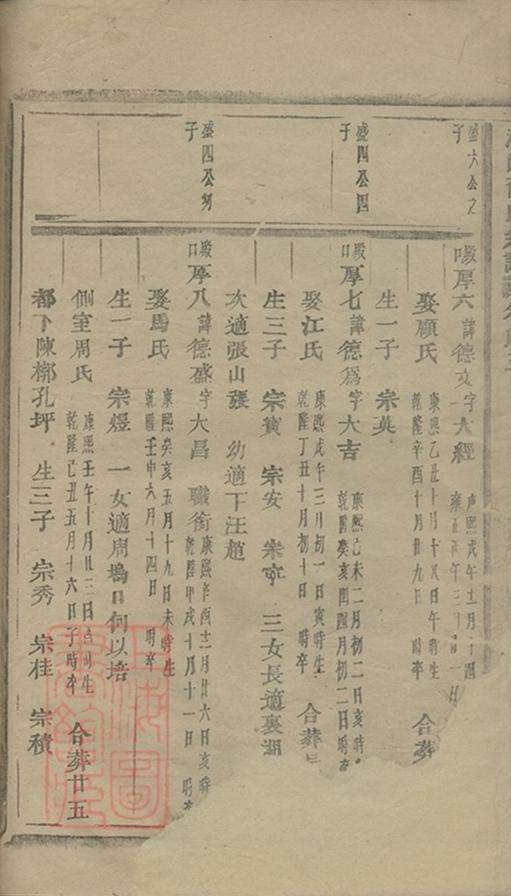 盛六公之
子
殿厚六諱德文字大經 康熙戊午十二月 雍正丙午三月 一日
娶顧氏 康熙乙丑十月十八日午時生 乾隆辛酉十月廿九日 時卒 合葬
生一子 宗英
盛四公四
子
殿厚七諱德爲字大吉 康熙己未二月初二日亥時 乾隆癸亥閏四月初二日 時卒
娶江氏 康熙戊午三月初一日寅時生 乾隆丁丑十月初十日 時卒 合葬
生三子 宗寅 宗安 宗寧 三女長適裏湖
次適張山張 幼適下汪趙
盛四公幼
子
殿厚八諱德盛字大昌 職銜 康熙辛酉十二月廿六日亥時 乾隆甲戌十月十一日 時卒
娶馬氏 康熙癸亥五月十九日未時生 乾隆壬申六月十四日 時卒
生一子 宗煜 一女適周塢口何以培
側室周氏 康熙壬午十月廿三日 時生 乾隆己丑五月十六日子時卒 合葬廿五
都下陳槨孔坪 生三子 宗秀 宗桂 宗積